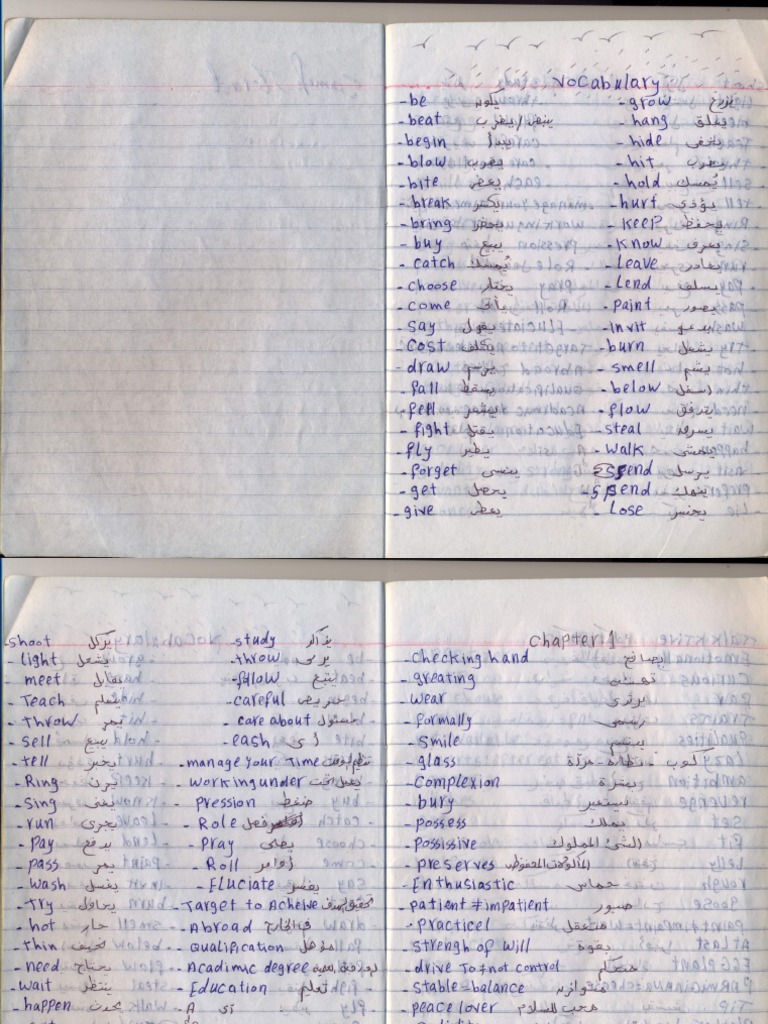 Vocabulary
- be يكون
- beat ينبض / يضرب
- begin يبدأ
- blow يضرب
- bite يعض
- break يكسر
- bring يحضر
- buy يبيع
- catch يُمسك
- choose يختار
- come يأتى
- say يقول
- cost يكلف
- draw يرسم
- fall يسقط
- feel يشعر
- fight يقتل
- fly يطير
- forget ينسى
- get يحصل
- give يعطى
- grow يزرع
- hang يعلق
- hide يخفى
- hit يضرب
- hold يُمسك
- hurt يؤذى
- keep يحفظ
- know يعرف
- leave يغادر
- Lend يسلف
- paint يصور
- invit يدعو
- burn يشعل
- smell يشم
- below اسفل
- flow يتدفق
- steal يسرق
- walk يمشى
- send يرسل
- spend
- Lose يخسر
- shoot يركل
- light يشعل
- meet يقابل
- Teach يعلم
- Throw
- sell يبيع
- tell يخبر
- Ring يرن
- sing يغنى
- run يجرى
- pay يدفع
- pass يمر
- wash يغسل
- Try يحاول
- hot حار
- thin نحيف
- need يحتاج
- wait ينتظر
- happen يحدث
- study يذاكر
- throw يرمى
- fullow يتبع
- careful حريص
- care about
- eash أى
- manage your Time
- working under
- Pression ضغط
- Role
- pray يصلى
- Roll أوامر
- Eluciate يفسر
- Target to Acheive
- Abroad فى الخارج
- Qualification مؤهل
- Acadimic degree
- Education تعليم
- A أى
Chapter 1
- checking hand يصافح
- greating
- wear يرتدى
- formally رسمى
- smile يبتسم
- glass كوب - نظارة - مرآة
- complexion بشرة
- bury
- possess يمتلك
- possissive الشئ المملوك
- preserves المأكولات المحفوظة
- Enthusiastic حماس
- patient ≠ impatient صبور
- practicel
- strengh of will بقوة
- drive To ≠ not control متحكم
- stable - balance متوازن
- peace lover محب للسلام